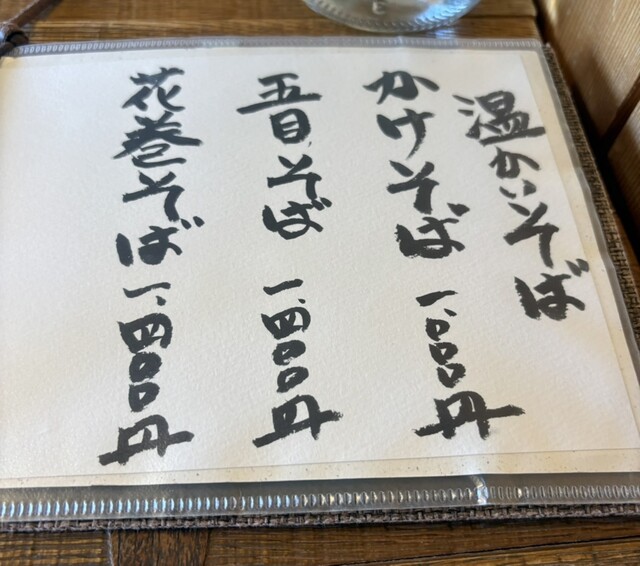 温かいそば
かけそば 一、〇〇〇円
五目そば 一、四〇〇円
花巻そば 一、四〇〇円